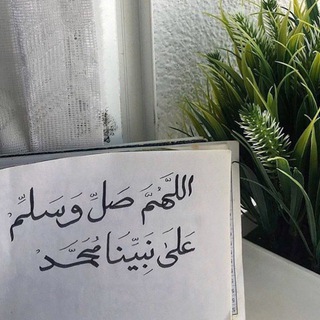 اللَّهُمَّ صَلِّ وَسَلِّمْ
عَلَىٰ نَبِيِّنَا مُحَمَّدْ